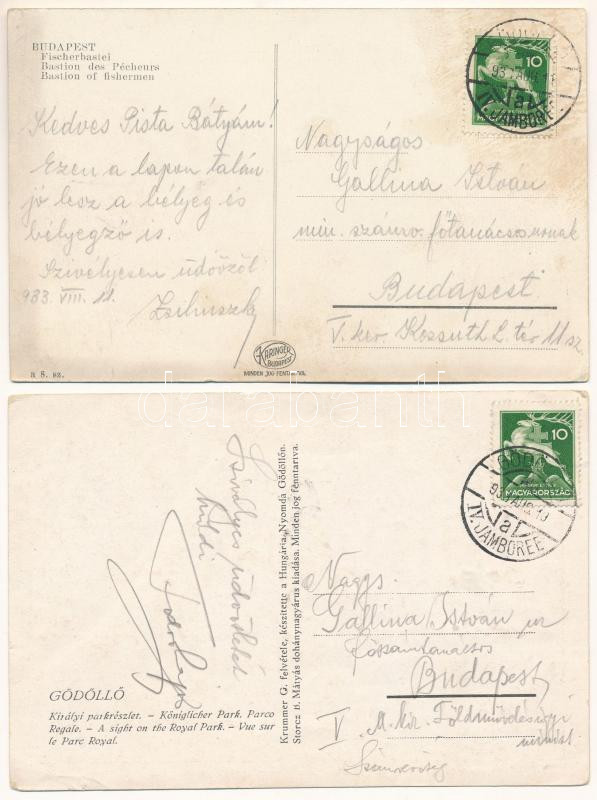 BUDAPEST
Fischerbastei
Bastion des Pécheurs
Bastion of fishermen
Kedves Pista Bátyám!
Ezen a lapon talán
jó lesz a bélyeg és
bélyegző is.
Szívélyesen üdvözöl
933. VIII. 11.
a 8. sz.
KARINGER
BUDAPEST
MINDEN JOG FENTARTVA.
10
933 AUG 11
a
IV. JAMBOREE
Nagyságos
Gallina István
min. számv. főtanácsosnak
Budapest
V. ker Kossuth L. tér 11 sz.
darabanth
Szívélyes üdvözlettel
küldi
GÖDÖLLŐ
Királyi parkrészlet. – Königlicher Park. Parco
Regale. – A sight on the Royal Park. – Vue sur
le Parc Royal.
Krummer G. felvétele, készítette a Hungária-Nyomda Gödöllőn.
Storcz B. Mátyás dohánynagyárus kiadása. Minden jog fenntartva.
10
MAGYARORSZÁG
GÖDÖLLŐ
a
IV. JAMBOREE
Nagys.
Gallina István úr
főszámtanácsos
Budapest
V M. kir. Földművelésügyi
minist
Számvevőség